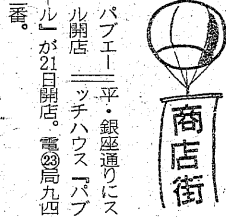 商店街
パブエー
ル開店
平・銀座通りにス
ッチハウス『パブ
ール』が21日開店。電㉓局九四
番。